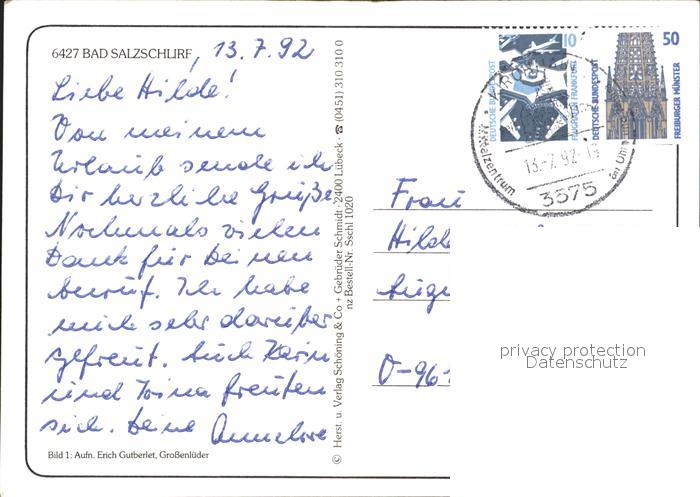 6427 BAD SALZSCHLIRF, 13.7.92
Liebe Hilde!
Von meinem
Urlaub sende ich
Dir herzliche Grüße
Nochmals vielen
Dank für Deinen
Anruf. Ich habe
mich sehr darüber
gefreut. Auch Karin
und Irina freuten
sich. Deine Annelore
Bild 1: Aufn. Erich Gutberlet, Großenlüder
© Herst. u. Verlag Schöning & Co + Gebrüder Schmidt · 2400 Lübeck · ☎ (0451) 310 310 0
nz Bestell-Nr. Sschl 1020
DEUTSCHE BUNDESPOST
10
FLUGHAFEN FRANKFURT
DEUTSCHE BUNDESPOST
50
FREIBURGER MÜNSTER
13.-7.92
3575
Frau
Hild
O-96
privacy protection
Datenschutz